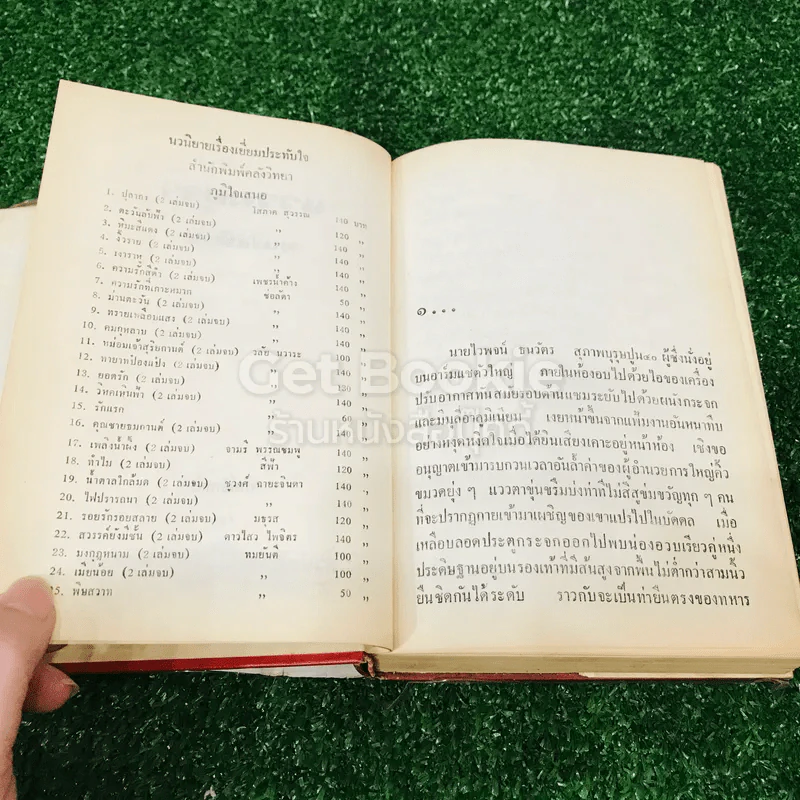 นวนิยายเรื่องเยี่ยมประทับใจ
สำนักพิมพ์คลังวิทยา
ภูมิใจเสนอ
1. ปุลากง (2 เล่มจบ) โสภาค สุวรรณ 140 บาท
2. ตะวันลับฟ้า (2 เล่มจบ) ,, 120 ,,
3. หิมะสีแดง (2 เล่มจบ) ,, 140 ,,
4. งิ้วราย (2 เล่มจบ) ,, 140 ,,
5. เงาราหู (2 เล่มจบ) ,, 140 ,,
6. ความรักสีดำ (2 เล่มจบ) เพชรน้ำค้าง 140 ,,
7. ความรักที่เกาะหมาก ช่อลัดา 50 ,,
8. ม่านตะวัน (2 เล่มจบ) ,, 140 ,,
9. ทรายเหลือบแสง (2 เล่มจบ) ,, 140 ,,
10. คมกุหลาบ (2 เล่มจบ) ,, 140 ,,
11. หม่อมเจ้าสุริยกานต์ (2 เล่มจบ) วลัย นวาระ 140 ,,
12. ทายาทป้องแป้ง (2 เล่มจบ) ,, 140 ,,
13. ยอดรัก (2 เล่มจบ) ,, 140 ,,
14. วิหคเหินฟ้า (2 เล่มจบ) ,, 140 ,,
15. รักแรก ,, 60 ,,
16. คุณชายชมกานต์ (2 เล่มจบ) ,, 140 ,,
17. เพลิงน้ำผึ้ง (2 เล่มจบ) จามรี พรรณชมพู 140 ,,
18. ทำไม (2 เล่มจบ) สีฟ้า 120 ,,
19. น้ำตาลใกล้มด (2 เล่มจบ) ชูวงศ์ ฉายะจินดา 140 ,,
20. ไฟปรารถนา (2 เล่มจบ) ,, 140 ,,
21. รอยรักรอยสลาย (2 เล่มจบ) มธุรส 120 ,,
22. สวรรค์ยังมีชั้น (2 เล่มจบ) ดาวไสว ไพจิตร 140 ,,
23. มงกุฎหนาม (2 เล่มจบ) ทมยันตี 100 ,,
24. เมียน้อย (2 เล่มจบ) ,, 100 ,,
25. พิษสวาท ,, 50 ,,
๑...
นายไวพจน์ ธนวัตร สุภาพบุรุษปูน ๔๐ ผู้ซึ่งนั่งอยู่
บนอาร์มแชตัวใหญ่ ภายในห้องอบไปด้วยไอของเครื่อง
ปรับอากาศทันสมัยรอบด้านแซมระยับไปด้วยผนังกระจก
และมิบูลี่อาลูมิเนียม เงยหน้าขึ้นจากแฟ้มงานอันหนาทึบ
อย่างหงุดหงิดใจเมื่อได้ยินเสียงเคาะอยู่หน้าห้อง เชิงขอ
อนุญาตเข้ามารบกวนเวลาอันล้ำค่าของผู้อำนวยการใหญ่คิ้ว
ขมวดยุ่ง ๆ แววตาขุ่นขรึมบ่งท่าทีไม่สู้สูข่มขวัญทุก ๆ คน
ที่จะปรากฏกายเข้ามาเผชิญของเขาแปรไปในบัดดล เมื่อ
เหลือบลอดประตูกระจกออกไปพบน่องอวบเรียวคู่หนึ่ง
ประดิษฐานอยู่บนรองเท้าที่มีส้นสูงจากพื้นไม่ต่ำกว่าสามนิ้ว
ยืนชิดกันได้ระดับ ราวกับจะเป็นท่ายืนตรงของทหาร
Get Bookie
ร้านหนังสือบุ๊คกี้